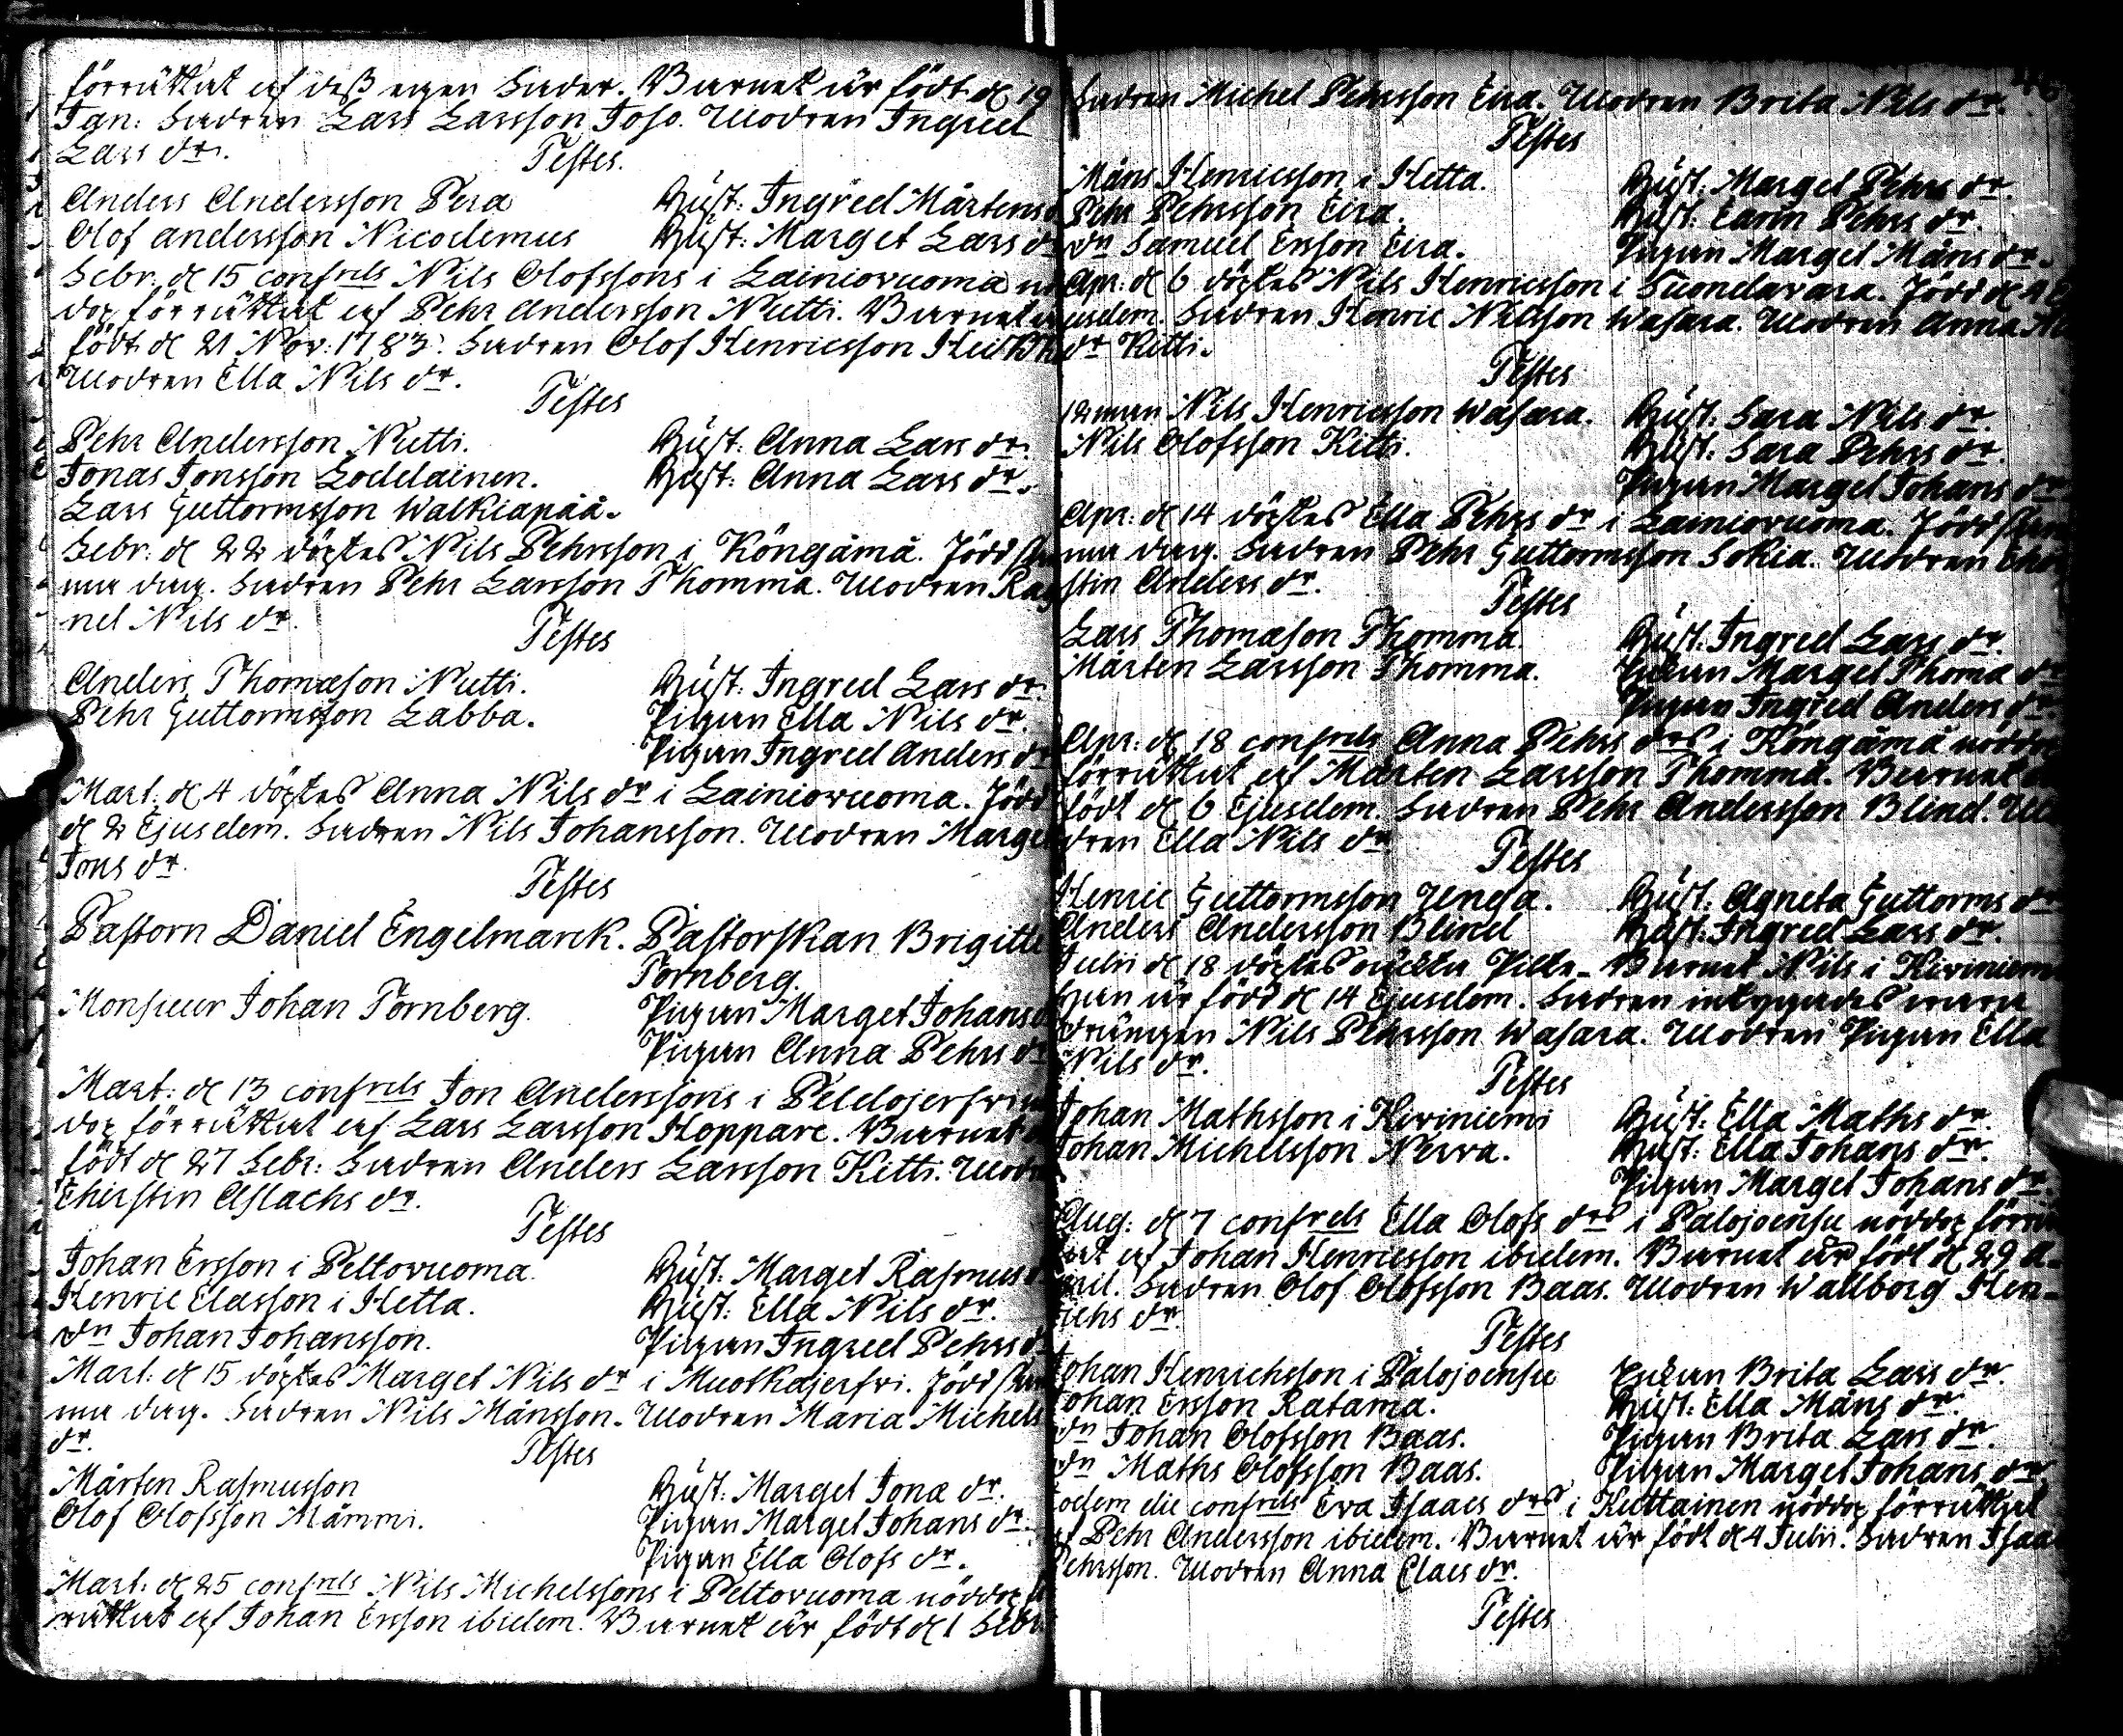 förrättat af deß egen fader. Barnet är född d. 19
Jan: fadren Lars Larsson Joso. Modren Ingred
Lars dr.
Testes.
Anders Andersson Pera Hust: Ingred Mårtens
Olof andersson Nicodemus Hust: Marget Lars dr
Febr. d. 15 confrds Nils Olofssons i Lainiovuoma
dop förrättat af Pehr Andersson Nutti. Barnet
född d. 21 Nov: 1783. fadren Olof Henricsson
Modren Ella Nils dr.
Testes
Pehr Andersson Nutti. Hust: Anna Lars dr.
Jonas Jonsson Lodelainen. Hust: Anna Lars dr.
Lars Guttormsson Walkiapää.
Febr: d. 22 döptes Nils Pehrsson i Köngämä. Född sam
ma dag. fadren Pehr Larsson Thomma. Modren Rag
nel Nils dr.
Testes
Anders Thomæson Nutti. Hust: Ingred Lars dr.
Pehr Guttormsson Labba. Pigan Ella Nils dr.
Pigan Ingred Anders dr
Mart: d. 4 döptes Anna Nils dr i Lainiovuoma. Född
d. 2 Ejusdem. fadren Nils Johansson. Modren Marget
Jons dr.
Testes
Pastorn Daniel Engelmarck. Pastorskan Brigitte
Tornberg.
Monsieur Johan Tornberg. Pigan Marget Johans
Pigan Anna Pehrs dr
Mart: d. 13 confrds Jon Anderssons i
dop förrättat af Lars Larsson Hoppare. Barnet
född d. 27 Febr: fadren Anders Larsson Kitti. Modr
Cherstin Aslachs dr.
Testes
Johan Ersson i Peltovuoma. Hust: Marget Rasmus
Henric Elasson i Hetta. Hust: Ella Nils dr.
dn Johan Johansson. Pigan Ingred Pehrs dr
Mart: d. 15 döptes Marget Nils dr i Muotkajerfvi. Född sam
ma dag. fadren Nils Månsson. Modren Maria Michels
dr.
Testes
Mårten Rasmusson Hust: Marget Jonæ dr.
Olof Olofsson Mämmi. Pigan Marget Johans dr.
Pigan Ella Olofs dr.
Mart: d. 25 confrds Nils Michelssons i Peltovuoma nöddop
rättat af Johan Ersson ibidem. Barnet är född d. 1 Febr
fadren Michel Pehrsson Eira. Modren Brita Nils dr.
Testes
Måns Henricsson i Hetta. Hust: Marget Pehrs dr.
Pehr Pehrsson Eira. Hust: Carin Pehrs dr.
dn Samuel Ersson Eira. Pigan Marget Måns dr.
Apr: d. 6 döptes Nils Henricsson i Suondavara. Född d. 4
usdem. fadren Henric Nilsson Wasara. Modren Anna
dr Kitti.
Testes
12man Nils Henricsson Wasara. Hust: Sara Nils dr.
Nils Olofsson Kitti. Hust: Sara Pehrs dr.
Pigan Marget Johans dr
Apr: d. 14 döptes Ella Pehrs dr i Lainiovuoma. Född sam
ma dag. fadren Pehr Guttormsson Sokia. Modren Cher
stin Anders dr.
Testes
Lars Thomæson Thomma. Hust: Ingred Lars dr.
Mårten Larsson Thomma. Pigan Marget Thomæ dr
Pigan Ingred Anders dr.
Apr: d. 18 confrds Anna Pehrs drs i Köngämä nöddop
förrättat af Mårten Larsson Thomma. Barnet
född d. 6 Ejusdem. fadren Pehr Andersson Blind. Mo
dren Ella Nils dr
Testes
Henric Guttormsson Unga. Hust: Agneta Guttorms dr
Anders Andersson Blind Hust: Ingred Lars dr.
Julii d. 18 döptes oäckta Pilte-Barnet Nils i Kiviniemi
han är född d. 14 Ejusdem. fadren intygades wara
drängen Nils Pehrsson Wasara. Modren Pigan Ella
Nils dr.
Testes
Johan Mathsson i Kiviniemi Hust: Ella Maths dr.
Johan Michelsson Nerva. Hust: Ella Johans dr.
Pigan Marget Johans dr.
Aug: d. 7 confrds Ella Olofs drs i Palojoensu nöddop förrä
tat af Johan Henricsson ibidem. Barnet är född d. 29 A-
pril. fadren Olof Olofsson Baas. Modren Wallborg Hen-
richs dr.
Testes
Johan Henrichsson i Palojoensu Pigan Brita Lars dr.
Johan Ersson Ratama. Hust: Ella Måns dr.
dn Johan Olofsson Baas. Pigan Brita Lars dr.
dn Maths Olofsson Baas. Pigan Marget Johans dr
Eodem die confrds Eva Isaacs drs i Kuttainen nöddop förrättat
af Pehr Andersson ibidem. Barnet är född d. 4 Julii. fadren Isaac
Pehrsson. Modren Anna Claes dr.
Testes